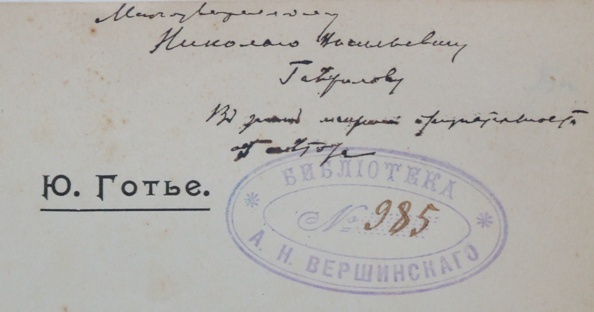 Многоуважаемому
Николаю Васильевичу
Гаврилову
Въ знакъ искренней признательности
отъ автора
Ю. Готье.
БИБЛІОТЕКА
№ 985
А. Н. ВЕРШИНСКАГО